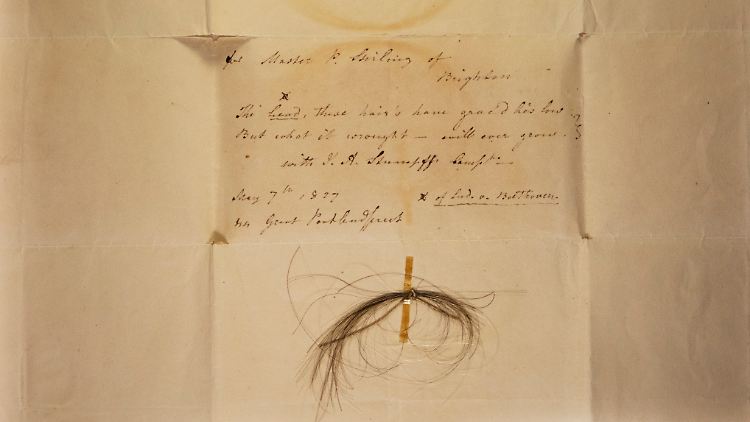 for Master P. Stirling of
Brighton
x
The Head, these hair's have grac'd lies low
But what it wrought – will ever grow.
with J. A. Stumpff's Compts. –
May 7th 1827
Great Portland Street
x of Lud. v. Beethoven.